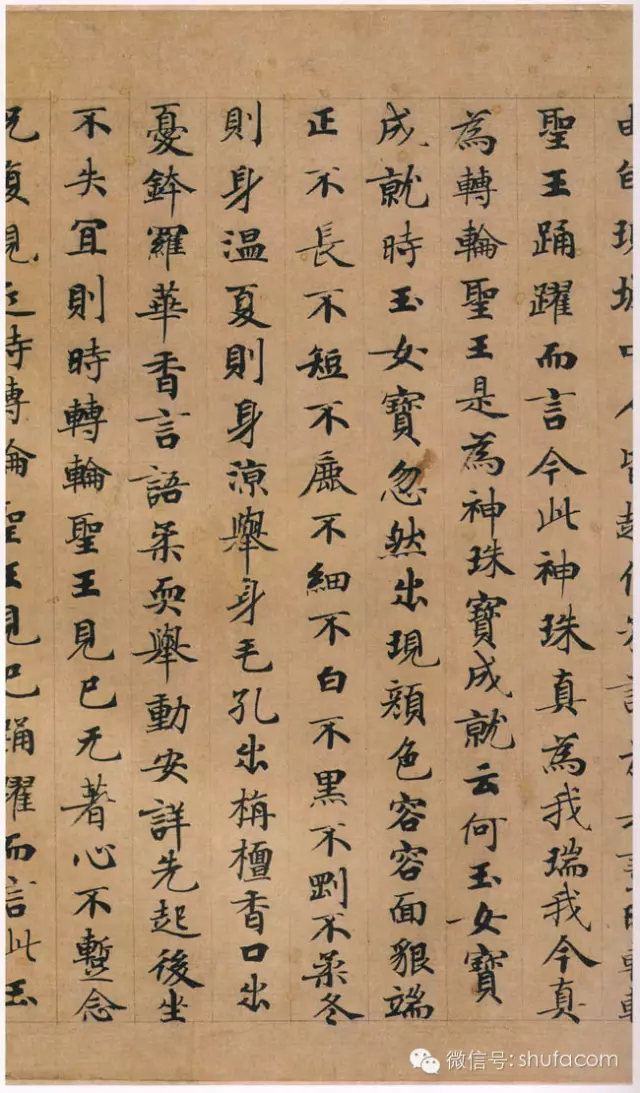 聖王踊躍而言今此神珠真為我瑞我今真
為轉輪聖王是為神珠寶成就云何玉女寶
成就時玉女寶忽然出現顏色容容面貌端
正不長不短不麁不細不白不黑不剛不柔冬
則身溫夏則身涼舉身毛孔出栴檀香口出
憂鉢羅華香言語柔耎舉動安詳先起後坐
不失冝則時轉輪聖王見已无著心不蹔念
況復親近時轉輪聖王見已踊躍而言此玉
微信号: shufacom